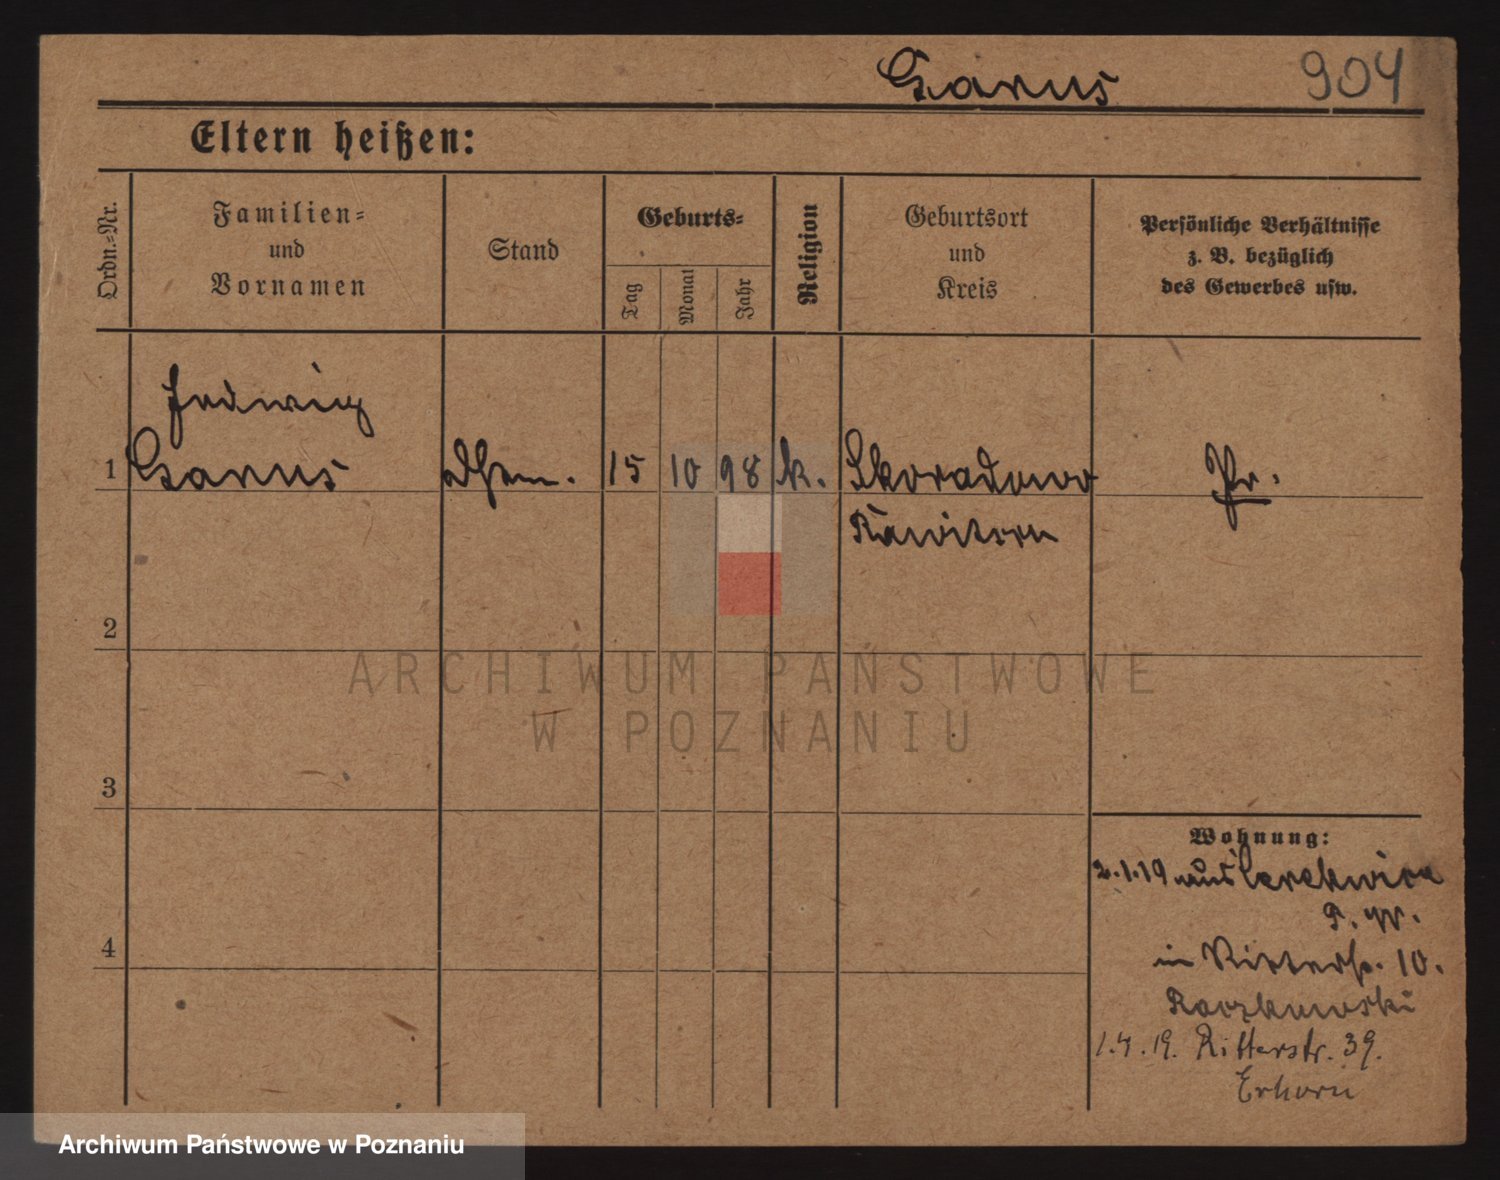 904
Eltern heißen:
Ordn.=Nr.
Familien=
und
Vornamen
Stand
Geburts=
Tag
Monat
Jahr
Religion
Geburtsort
und
Kreis
Persönliche Verhältnisse
z. B. bezüglich
des Gewerbes usw.
Hedwig
1
15 10 98 k. Skoradowo
Pr.
Rawitsch
2
ARCHIWUM PAŃSTWOWE
W POZNANIU
3
Wohnung:
2.1.19 aus Cerekwica
4
in Ritterstr. 10.
Raczkowski
1.4.19. Ritterstr. 39.
Erhorn
Archiwum Państwowe w Poznaniu